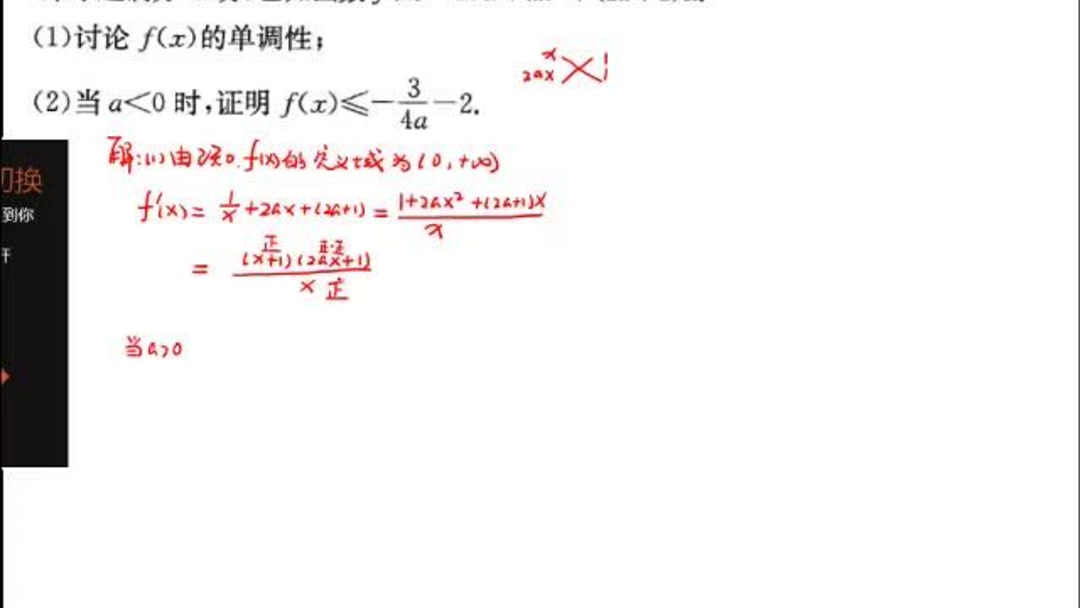 (1)讨论 f(x)的单调性;
(2)当 a<0 时,证明 f(x)≤-\frac{3}{4a}-2.
x 1
2ax 1
解:(1)由题, f(x)的定义域为(0,+∞)
切换
到你
f'(x)=\frac{1}{x}+2ax+(2a+1)=\frac{1+2ax²+(2a+1)x}{x}
正 正·正
=\frac{(x+1)(2ax+1)}{x}
正
当a>0